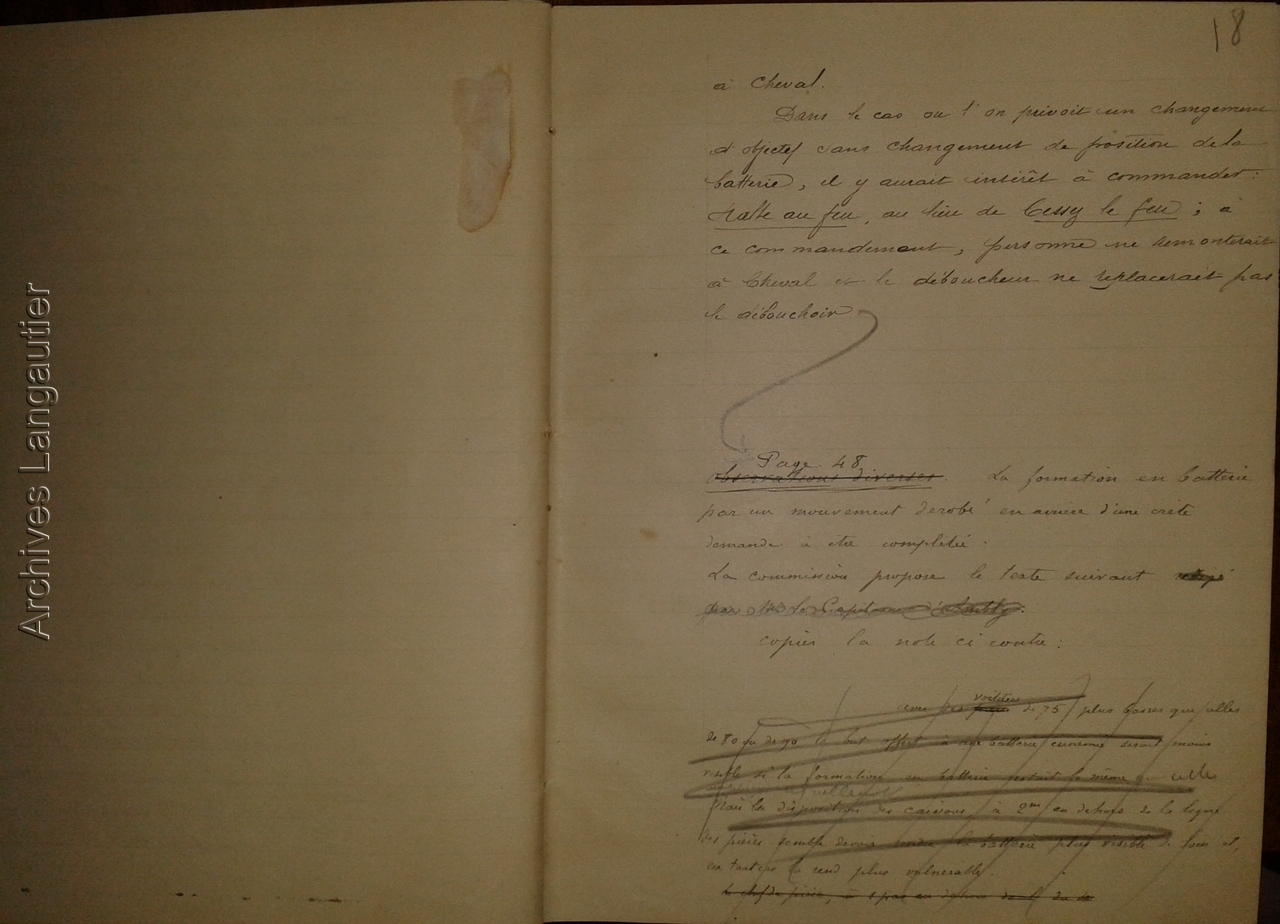 18
à cheval.
Dans le cas ou l'on prévoit un changement
d'objectif sans changement de position de la
batterie, il y aurait intérêt à commander :
Halte au feu, au lieu de Cessez le feu ; à
ce commandement, personne ne remonterait
à cheval et le déboucheur ne replacerait pas
le débouchoir
Page 48
observations diverses. La formation en batterie
par un mouvement dérobé en arrière d'une crête
demande à être complétée.
La commission propose le texte suivant
par Mr le Capitaine
copier la note ci contre :
voitures
avec les de 75 plus basses que celles
de 80 ou de 90 le but offert à une batterie ennemie serait moins
visible si la formation en batterie restait la même que celle
Mais la disposition des caissons à 2m en dehors de la ligne
des pièces semble devoir rendre la batterie plus visible de loin et,
en tout cas la rend plus vulnérable.
Le chef de pièce, à 1 pas en dehors de
Archives Langautier